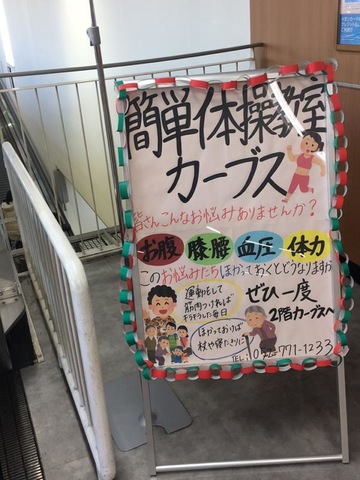 簡単体操教室
カーブス
皆さんこんなお悩みありませんか？
お腹 膝腰 血圧 体力
このお悩みたち ほかっておくとどうなりますか
運動をして
筋肉つければ
ぜひ一度
2階カーブスへ
ほかっておけば
杖や寝たきりに
771-1233